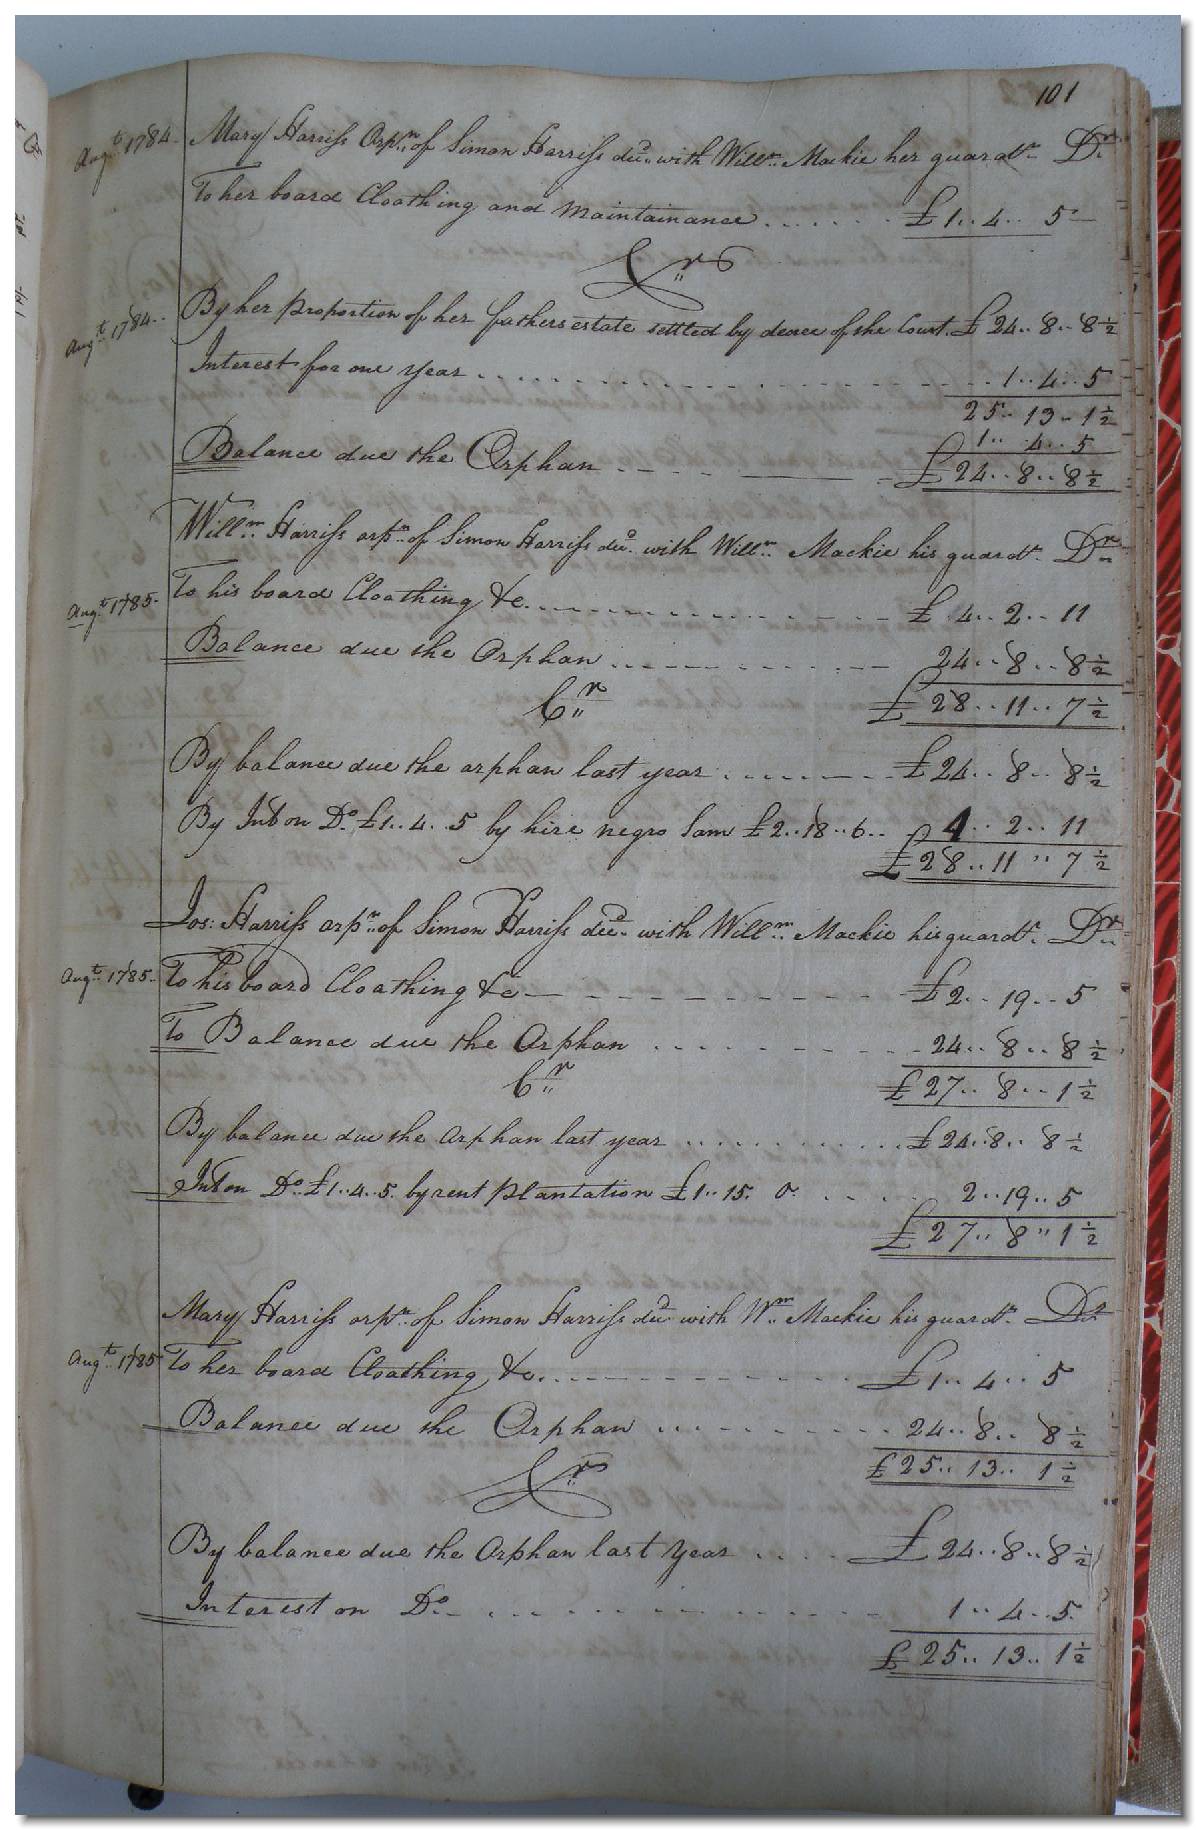 101
Augt. 1784. Mary Harriss Orpn. of Simon Harriss decd. with Willm. Mackie her guardn. Dr.
To her board Cloathing and Maintainance ...... £1..4..5
Cr
Augt. 1784.. By her proportion of her fathers estate settled by decree of the Court. £24..8..8½
Interest for one year ...... 1..4..5
25..13..1½
1..4..5
Balance due the Orphan ...... £24..8..8½
Willm. Harriss orpn. of Simon Harriss decd. with Willm. Mackie his guardn. Dr.
Augt. 1785. To his board Cloathing &c. ...... £4..2..11
Balance due the Orphan ...... 24..8..8½
Cr. £28..11..7½
By balance due the orphan last year ...... £24..8..8½
By Int on Do. £1..4..5 by hire negro Sam £2..18..6.. 4..2..11
£28..11"7½
Jos: Harriss orpn. of Simon Harriss decd. with Willm. Mackie his guardn. Dr.
Augt. 1785. To his board Cloathing &c ...... £2..19..5
To Balance due the Orphan ...... 24..8..8½
Cr. £27..8..1½
By balance due the Orphan last year ...... £24..8..8½
Int on Do. £1..4..5. by rent plantation £1..15. 0. .... 2..19..5
£27..8"1½
Mary Harriss orpn. of Simon Harriss decd. with Wm. Mackie his guardn. Dr
Augt. 1785 To her board Cloathing &c. ...... £1..4..5
Balance due the Orphan ...... 24..8..8½
£25..13..1½
Cr
By balance due the Orphan last year .... £24..8..8½
Interest on Do. ...... 1..4..5.
£25..13..1½